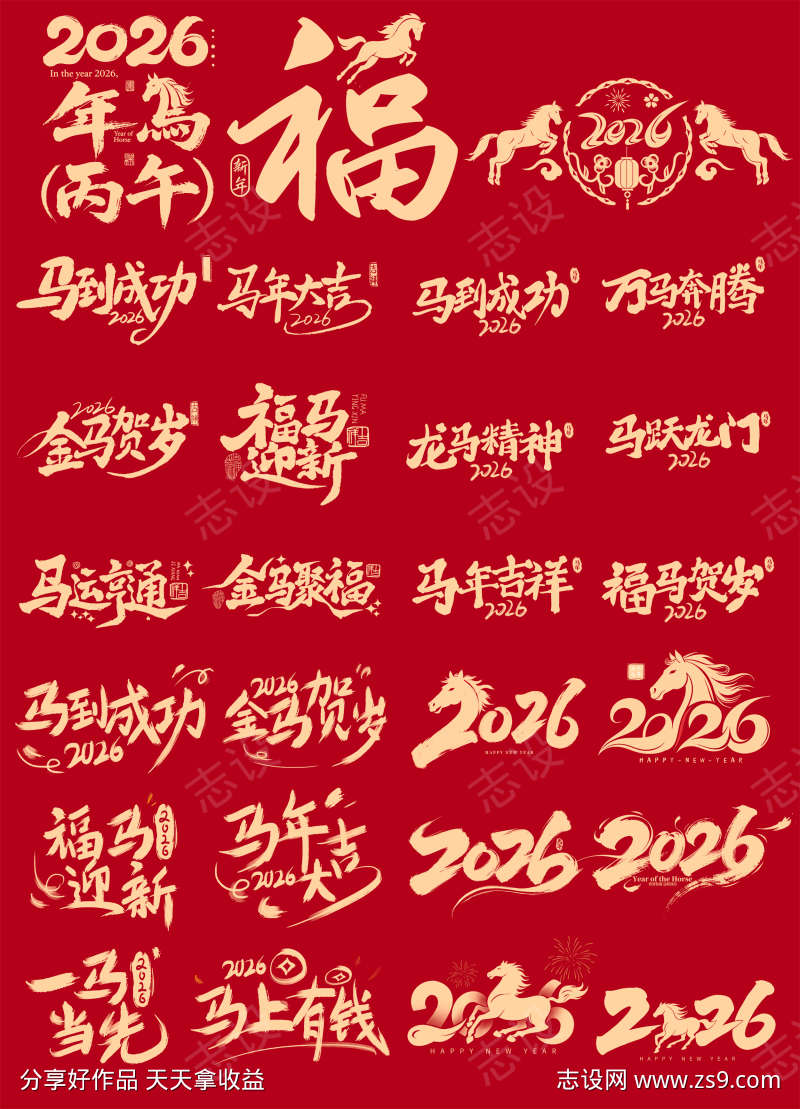 2026
In the year 2026,
年馬
Year of
Horse
(丙午)
福
新年
2026
马到成功
2026
马年大吉
2026
马到成功
2026
万马奔腾
2026
2026
金马贺岁
福马
迎新
FU MA
YING XIN
龙马精神
2026
马跃龙门
2026
马运亨通
金马聚福
马年吉祥
2026
福马贺岁
2026
马到成功
2026
2026
金马贺岁
2026
HAPPY NEW YEAR
2026
HAPPY-NEW-YEAR
福马
迎新
2026
马年
大吉
2026
2026
2026
Year of the Horse
一马
当先
2026
2026
马上有钱
2026
HAPPY NEW YEAR
2026
HAPPY NEW YEAR
志设
分享好作品 天天拿收益
志设网 www.zs9.com